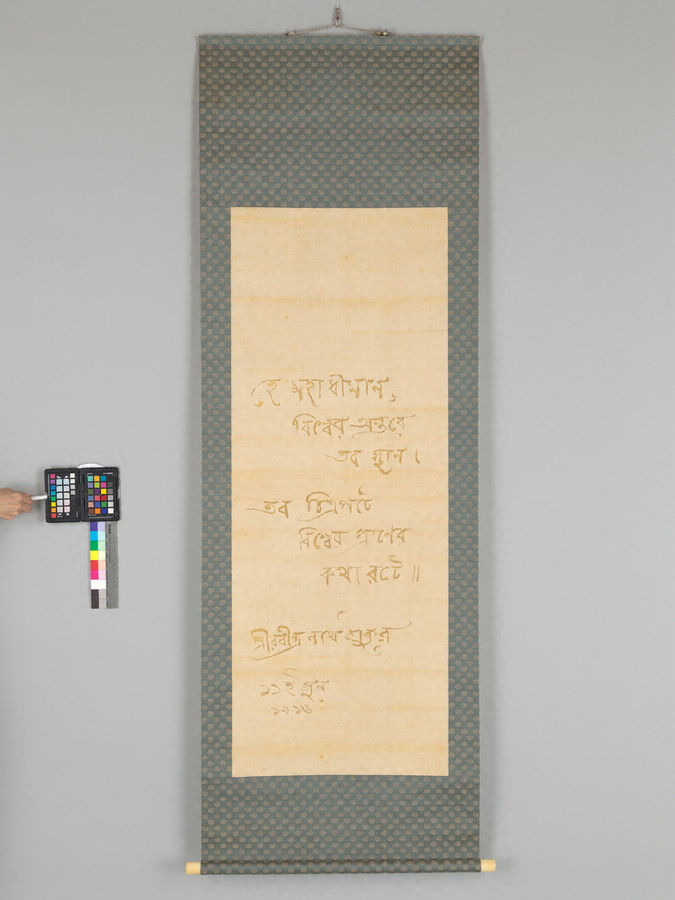 হে মহা ধীমান,
বিশ্বের অন্তরে
তব স্থান।
তব চিত্রপটে
বিশ্বের প্রাণের
কথা রটে॥
শ্রীরবীন্দ্রনাথ ঠাকুর
১১ই জুন
১৯১৬